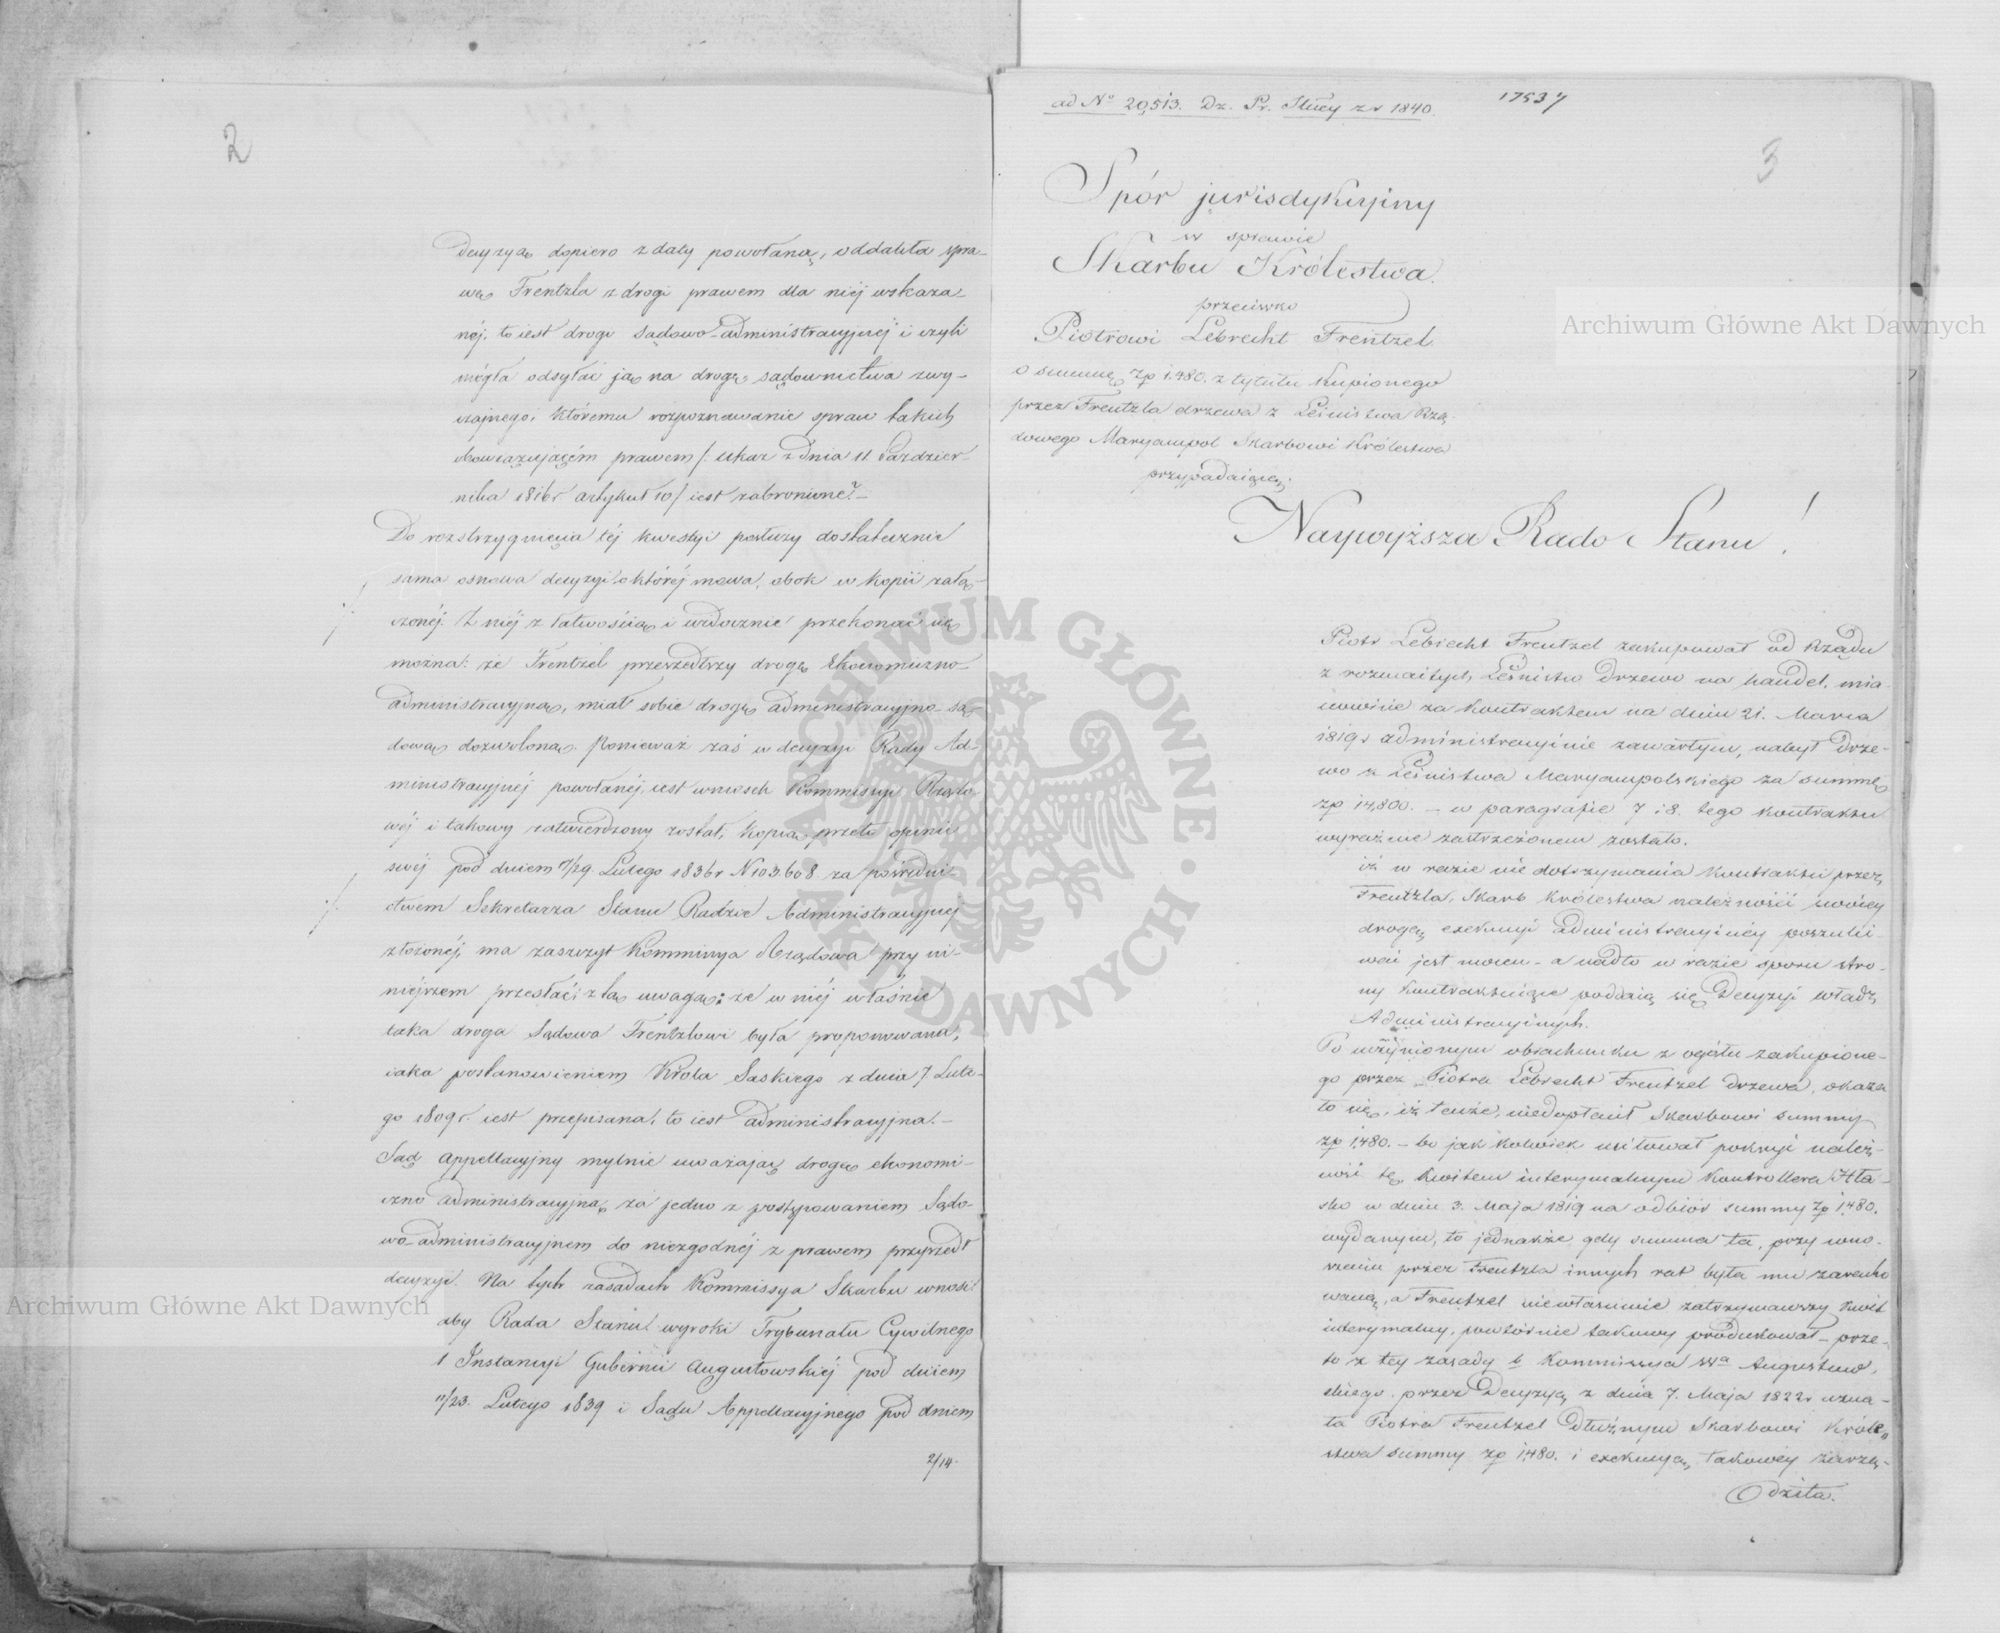 2
decyzyą dopiero z daty powołaną, oddaliła spra-
wę Frentzla z drogi prawem dla niéj wskaza-
néj, to iest drogi sądowo-administracyjnéj i czyli
mógła odsyłać ją na drogę sądownictwa zwy-
czajnego, któremu rozpoznawanie spraw takich
obowiązującém prawem /: ukaz z dnia 11 Paździer-
nika 1816 r artykuł 10 / iest zabronione? -
Do rozstrzygnięcia téj kwestyi posłuży dostatecznie
sama osnowa decyzyi o któréj mowa, obok w kopii załą-
czonéj. Z niéj z łatwością i widocznie przekonać się
można: że Frentzel przeszedłszy drogę ekonomiczno-
administracyjną, miał sobie drogę administracyjno-są-
dową dozwoloną. Ponieważ zaś w decyzyi Rady Ad-
ministracyjnéj powołanéj, iest wniosek Kommissyi Rządo-
wéj i takowy zatwierdzony został, kopią przeto opinii
swéj pod dniem 17/29 Lutego 1836 r N 103.608 za pośredni-
ctwem Sekretarza Stanu Radzie Administracyjnéj
złożonéj, ma zaszczyt Kommissya Rządowa przy ni-
niejszem przesłać, z tą uwagą: że w niéj właśnie
taka droga Sądowa Frentzlowi była proponowana,
iaka postanowieniem Króla Saskiego z dnia 7 Lute-
go 1809 r. iest przepisana, to iest administracyjna. -
Sąd Appellacyjny mylnie uważając drogę ekonomi-
czno administracyjną za jedno z postępowaniem Sądo-
wo-administracyjnem do niezgodnéj z prawem przyszedł
decyzyi. Na tych zasadach Kommissya Skarbu wnosi:
aby Rada Stanu wyroki Trybunału Cywilnego
1 Instancyi Gubernii Augustowskiéj pod dniem
11/23. Lutego 1839 i Sądu Appellacyjnego pod dniem
2/14.
ad No 20,513. Dz. Pr. Służy z r 1840.
17537
3
Spór jurisdykcyiny
w sprawie
Skarbu Królestwa
przeciwko
Piotrowi Lebrecht Frentzel
o summę zp 1,480. z tytułu kupionego
przez Frentzla drzewa z Leśnistwa Rzą-
dowego Maryampol Skarbowi Królestwa
przypadaiącą.
Naywyższa Rado Stanu!
Piotr Lebrecht Frentzel zakupował od Rządu
z rozmaitych Leśnistw Drzewo na handel, mia-
nowicie za kontraktem na dniu 21. Marca
1819 r administracyinie zawartym, nabył Drze-
wo z Leśnistwa Maryampolskiego za summę
zp 14,800. - w paragrafie 7 i 8. tego kontraktu
wyraźnie zastrzeżonem zostało.
iż w razie nie dotrzymania kontraktu przez
Frentzla, Skarb Królestwa należności swoiey
drogą exekucyi administracyiney poszuki-
wać jest mocen - a nadto w razie sporu stro-
ny kontraktuiące poddaią się Decyzyi władz
Administracyinych.
Po uczynionym obrachunku z ogółu zakupione-
go przez Piotra Lebrecht Frentzel drzewa, okaza
ło się, iż tenże, niedopłacił Skarbowi summy
zp 1,480. - bo jak kolwiek usiłował pokryć należ-
ność tę kwitem interymalnym Kontrollera Hła-
sko w dniu 3. Maja 1819 na odbiór summy zp 1,480.
wydanym, to jednakże, gdy summa ta, przy wno-
szeniu przez Frentzla innych rat była mu zaracho
waną, a Frentzel niewłasnie zatrzymawszy kwit
interymalny, powtórnie takowy produkował - prze-
to z tey zasady b Kommissya Wa Augustow-
skiego, przez Decyzyą z dnia 7. Maja 1822 r uzna-
ła Piotra Frentzel Dłużnym Skarbowi Króle-
stwa summy zp 1,480. i exekucyą takowéy zarzą-
dziła.
Archiwum Główne Akt Dawnych
Archiwum Główne Akt Dawnych
ARCHIWUM GŁÓWNE AKT DAWNYCH